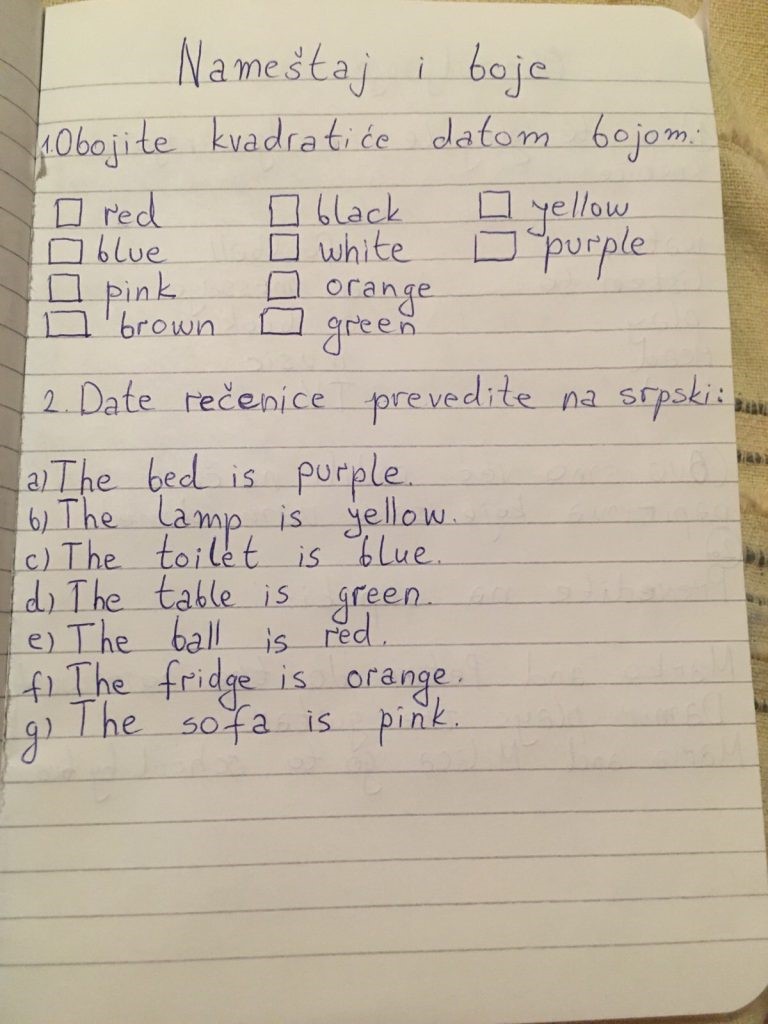 Nameštaj i boje
1. Obojite kvadratiće datom bojom:
red black yellow
blue white purple
pink orange
brown green
2. Date rečenice prevedite na srpski:
a) The bed is purple.
b) The lamp is yellow.
c) The toilet is blue.
d) The table is green.
e) The ball is red.
f) The fridge is orange.
g) The sofa is pink.